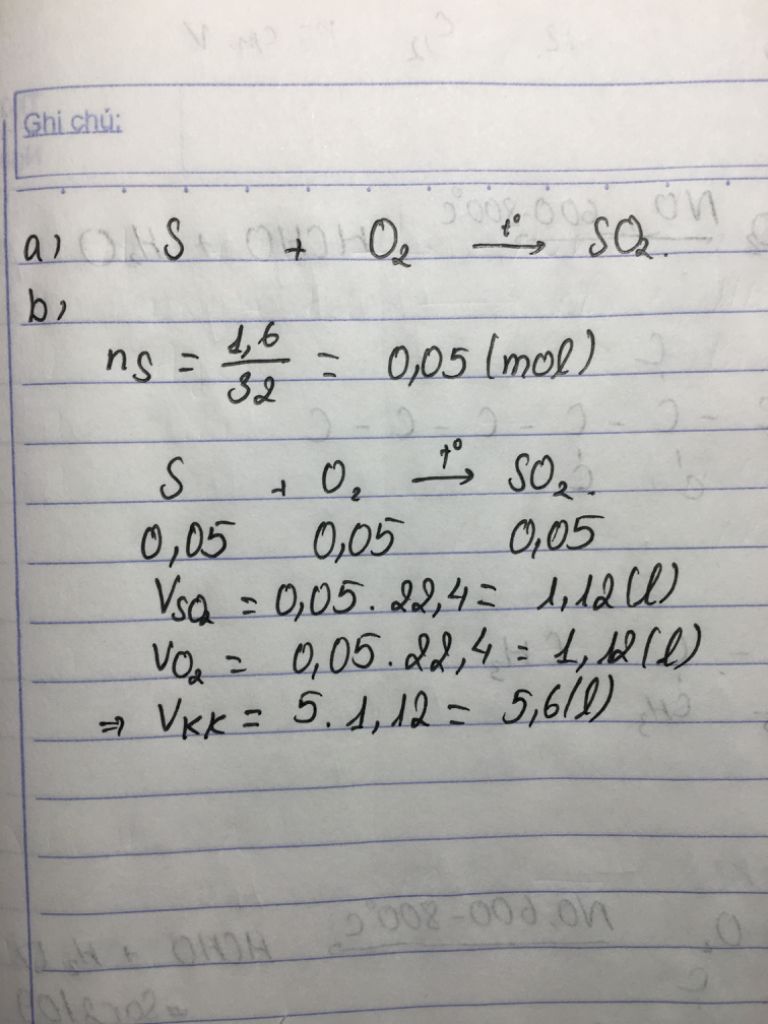 Ghi chú:
a) S + O₂ —t°→ SO₂.
b)
nS = 1,6/32 = 0,05 (mol)
S + O₂ —t°→ SO₂.
0,05 0,05 0,05
VSO₂ = 0,05 . 22,4 = 1,12 (l)
VO₂ = 0,05 . 22,4 = 1,12 (l)
⇒ VKK = 5 . 1,12 = 5,6 (l)